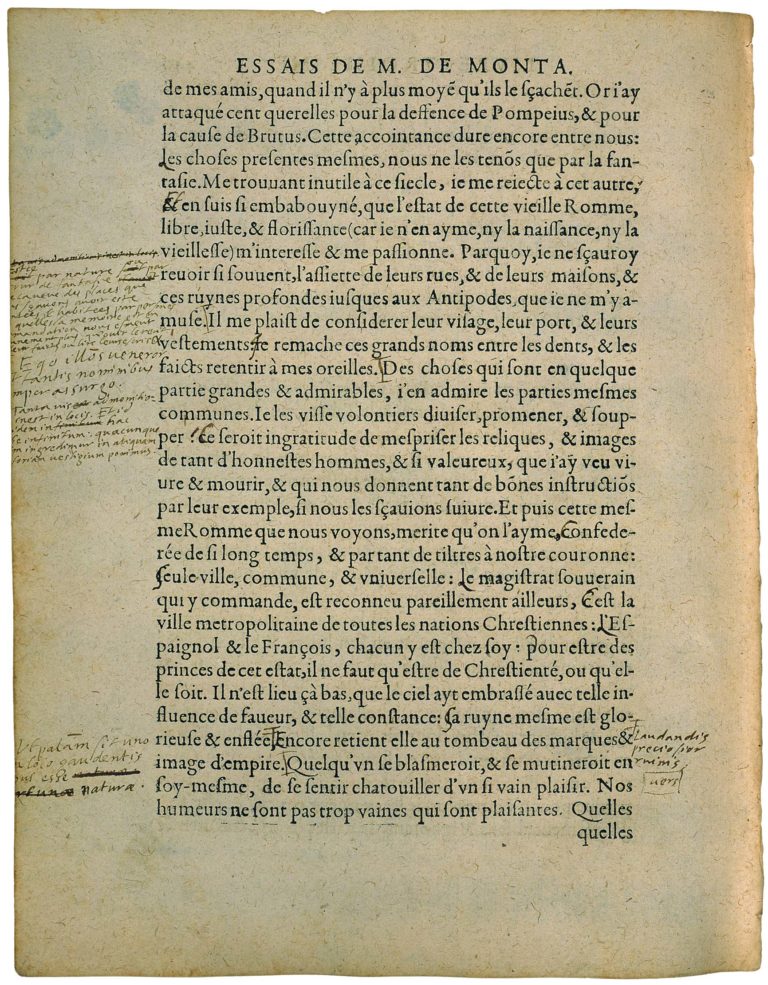 ESSAIS DE M. DE MONTA.
de mes amis, quand il n'y à plus moyẽ qu'ils le sçachẽt. Or i'ay
attaqué cent querelles pour la deffence de Pompeius, & pour
la cause de Brutus. Cette accointance dure encore entre nous:
Les choses presentes mesmes, nous ne les tenõs que par la fan-
tasie. Me trouuant inutile à ce siecle, ie me reiecte à cet autre,
& en suis si embabouyné, que l'estat de cette vieille Romme,
libre, iuste, & florissante (car ie n'en ayme, ny la naissance, ny la
vieillesse) m'interesse & me passionne. Parquoy, ie ne sçauroy
reuoir si souuent, l'assiette de leurs rues, & de leurs maisons, &
ces ruynes profondes iusques aux Antipodes, que ie ne m'y a-
muse. Il me plaist de considerer leur visage, leur port, & leurs
vestements: Je remache ces grands noms entre les dents, & les
faicts retentir à mes oreilles. Des choses qui sont en quelque
partie grandes & admirables, i'en admire les parties mesmes
communes. Ie les visse volontiers diuiser, promener, & soup-
per! Ce seroit ingratitude de mespriser les reliques, & images
de tant d'honnestes hommes, & si valeureux, que i'aÿ veu vi-
ure & mourir, & qui nous donnent tant de bõnes instructiõs
par leur exemple, si nous les sçauions suiure. Et puis cette mes-
me Romme que nous voyons, merite qu'on l'ayme, Confede-
rée de si long temps, & par tant de tiltres à nostre couronne:
Seule ville, commune, & vniuerselle: Le magistrat souuerain
qui y commande, est reconneu pareillement ailleurs, C'est la
ville metropolitaine de toutes les nations Chrestiennes: L'Es-
paignol & le François, chacun y est chez soy: pour estre des
princes de cet estat, il ne faut qu'estre de Chrestienté, ou qu'el-
le soit. Il n'est lieu çà bas, que le ciel ayt embrassé auec telle in-
fluence de faueur, & telle constance: Sa ruyne mesme est glo-
rieuse & enflée, Encore retient elle au tombeau des marques &
image d'empire. Quelqu'vn se blasmeroit, & se mutineroit en
soy-mesme, de se sentir chatouiller d'vn si vain plaisir. Nos
humeurs ne sont pas trop vaines qui sont plaisantes. Quelles
quelles
par nature
de fantasie
des places que
sçauons auoir esté
et habitées par
la memoire
Ego illos veneror
tantis nominibus
semper assurgo.
Tanta vis admonitionis
inest in locis. Et id
quidem in hac
infinitum: quacunque
ingredimur in aliquam
historiam vestigium ponimus.
Ut palàm sit uno
in loco gaudentis
opus esse naturæ.
Laudandis
preciosior
ruinis
vers